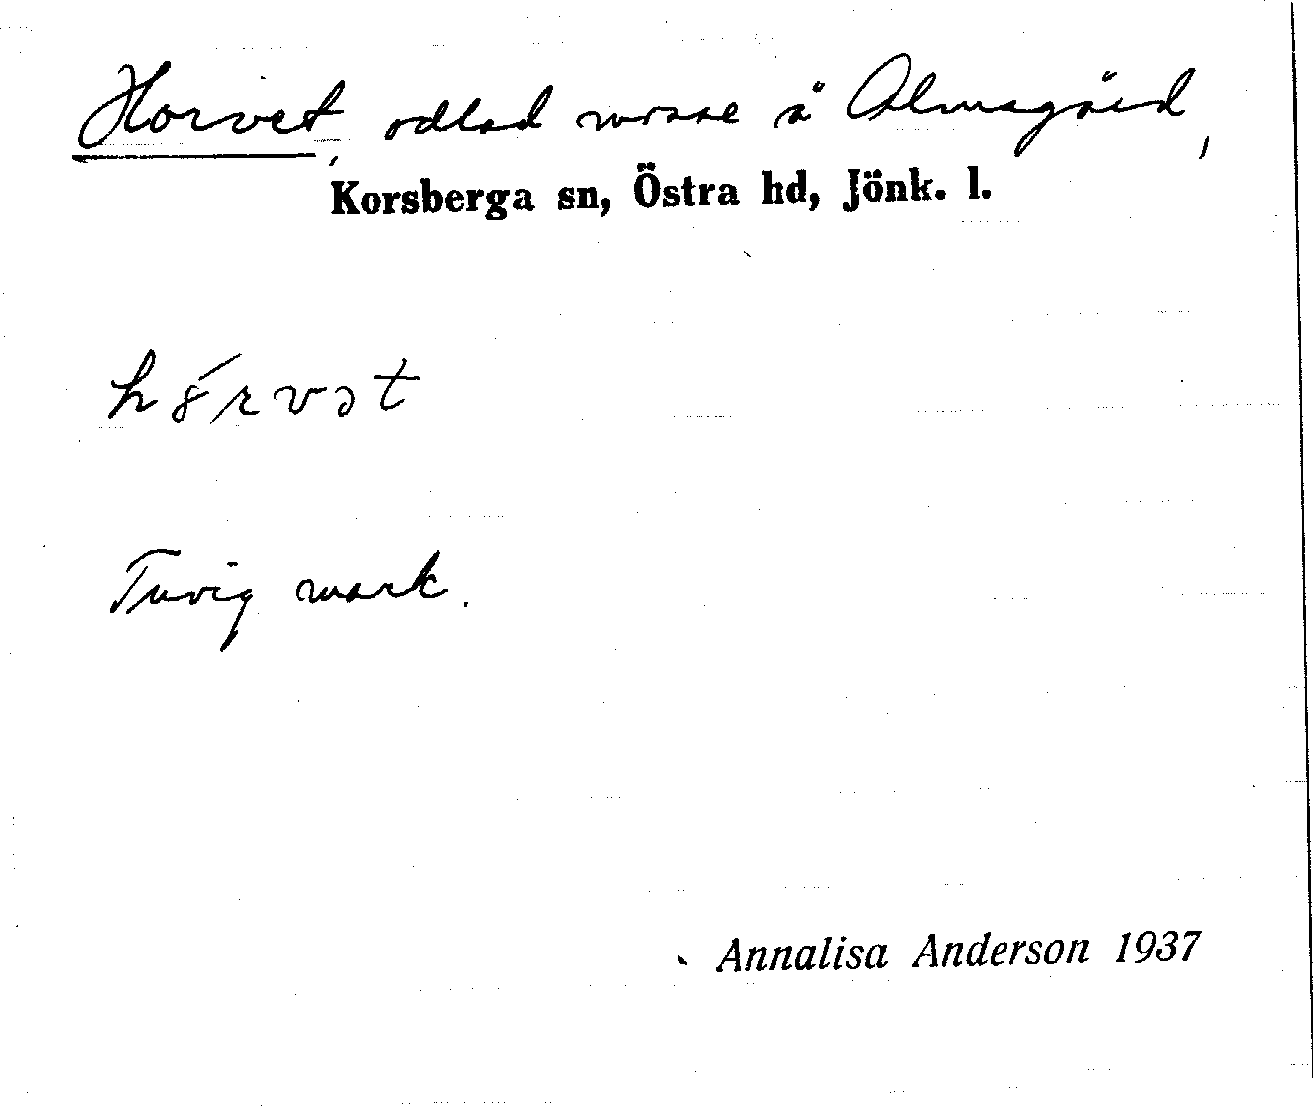 Horvet, odlad mosse å Almagärd,
Korsberga sn, Östra hd, Jönk. l.
hórvət
Tuvig mark.
Annalisa Anderson 1937